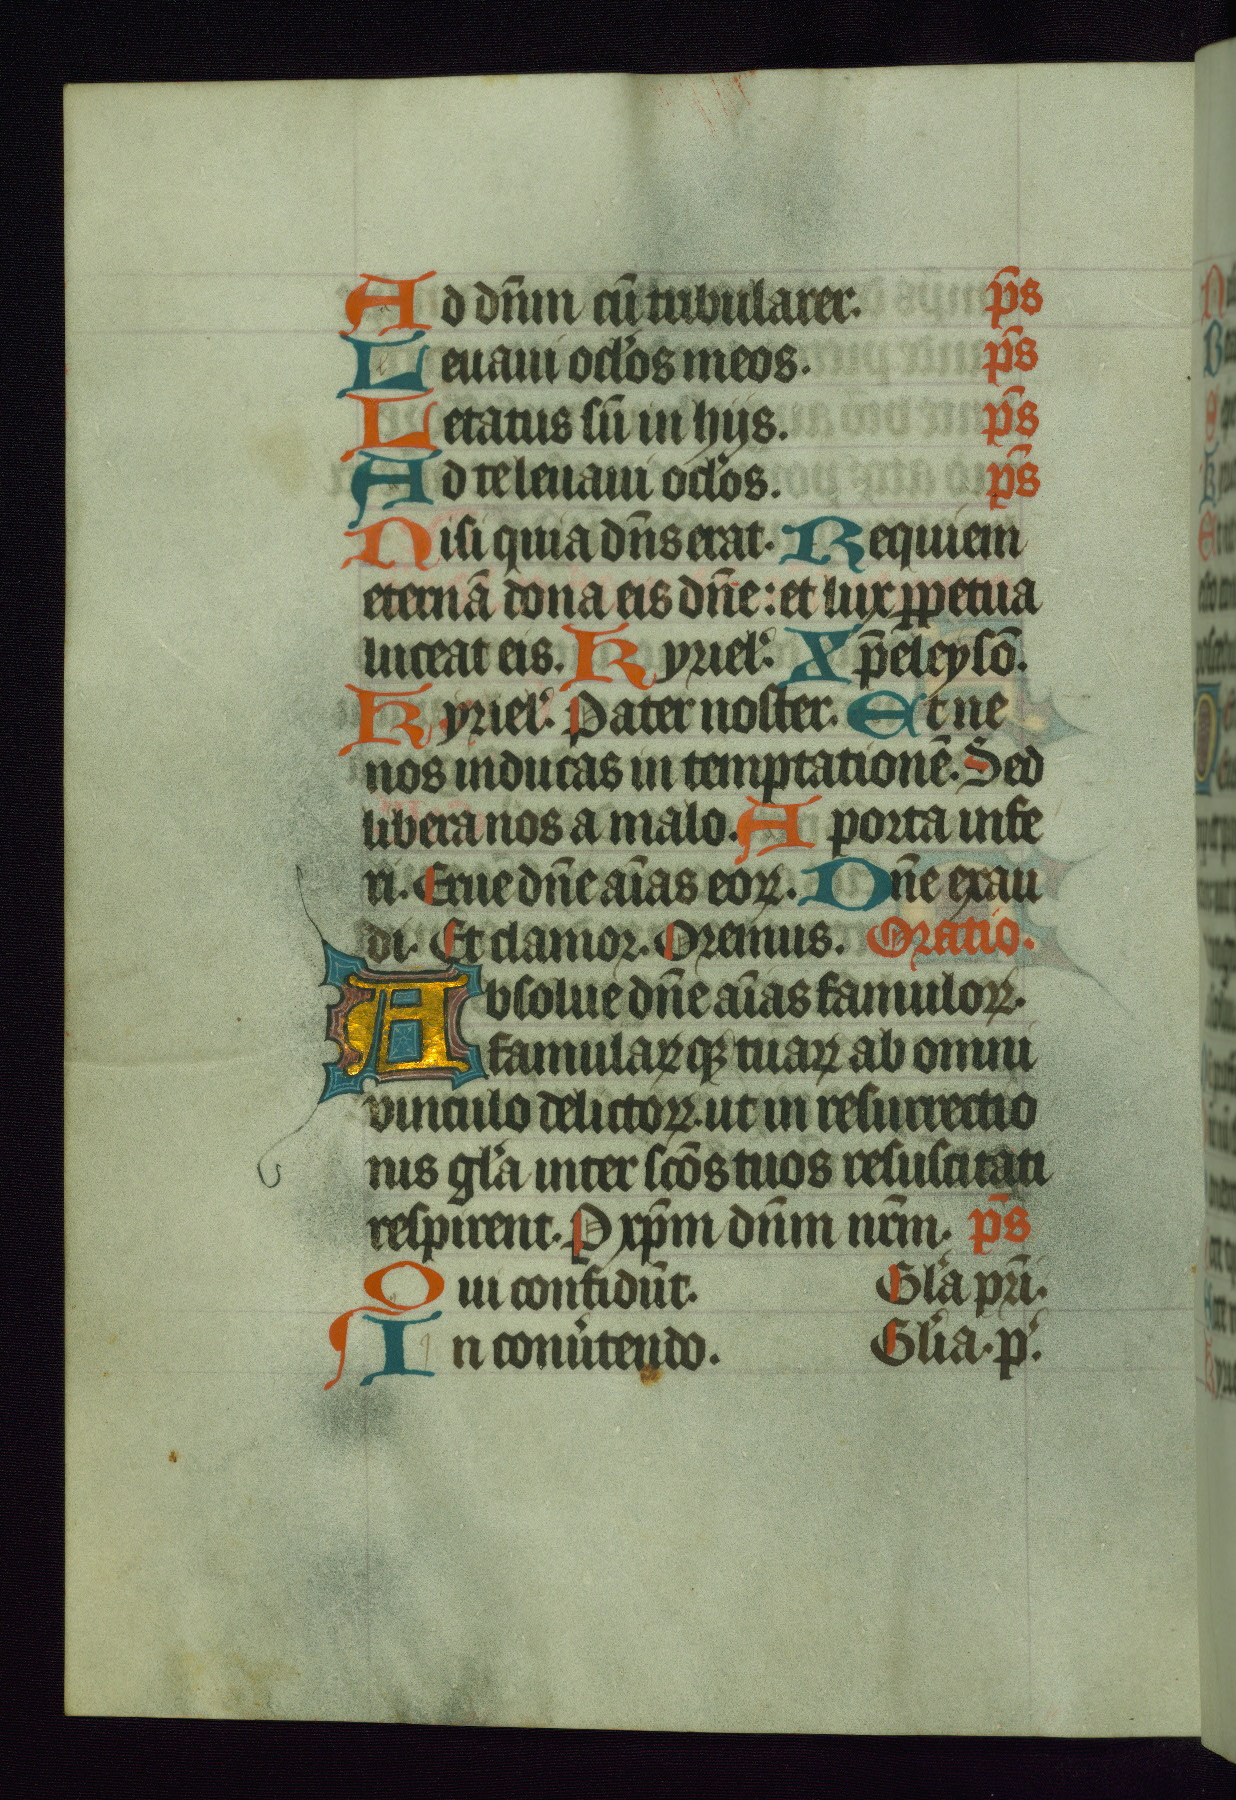 Ad dñm cũ tribularer. p̄s
Leuaui oclos meos. p̄s
Letatus sũ in hijs. p̄s
Ad te leuaui oclos. p̄s
Nisi quia dñs erat. Requiem
eternã dona eis dñe: et lux ꝑpetua
luceat eis. Kyriel'. Xp̄eleysõ.
Kyriel'. Pater noster. Et ne
nos inducas in temptationẽ. Sed
libera nos a malo. A porta infe
ri. Erue dñe aĩas eoꝝ. Dñe exau
di. Et clamor. Oremus. Oratio.
Absolue dñe aĩas famuloꝝ.
famulaꝝqꝫ tuaꝝ ab omni
vinculo delictoꝝ. ut in resurrectio
nis gl'a inter scõs tuos resuscitati
respirent. P xp̄m dñm nr̃m. p̄s
Qui confidũt. Gl'a pr̃i.
In conu'tendo. Gl'ia. p'.